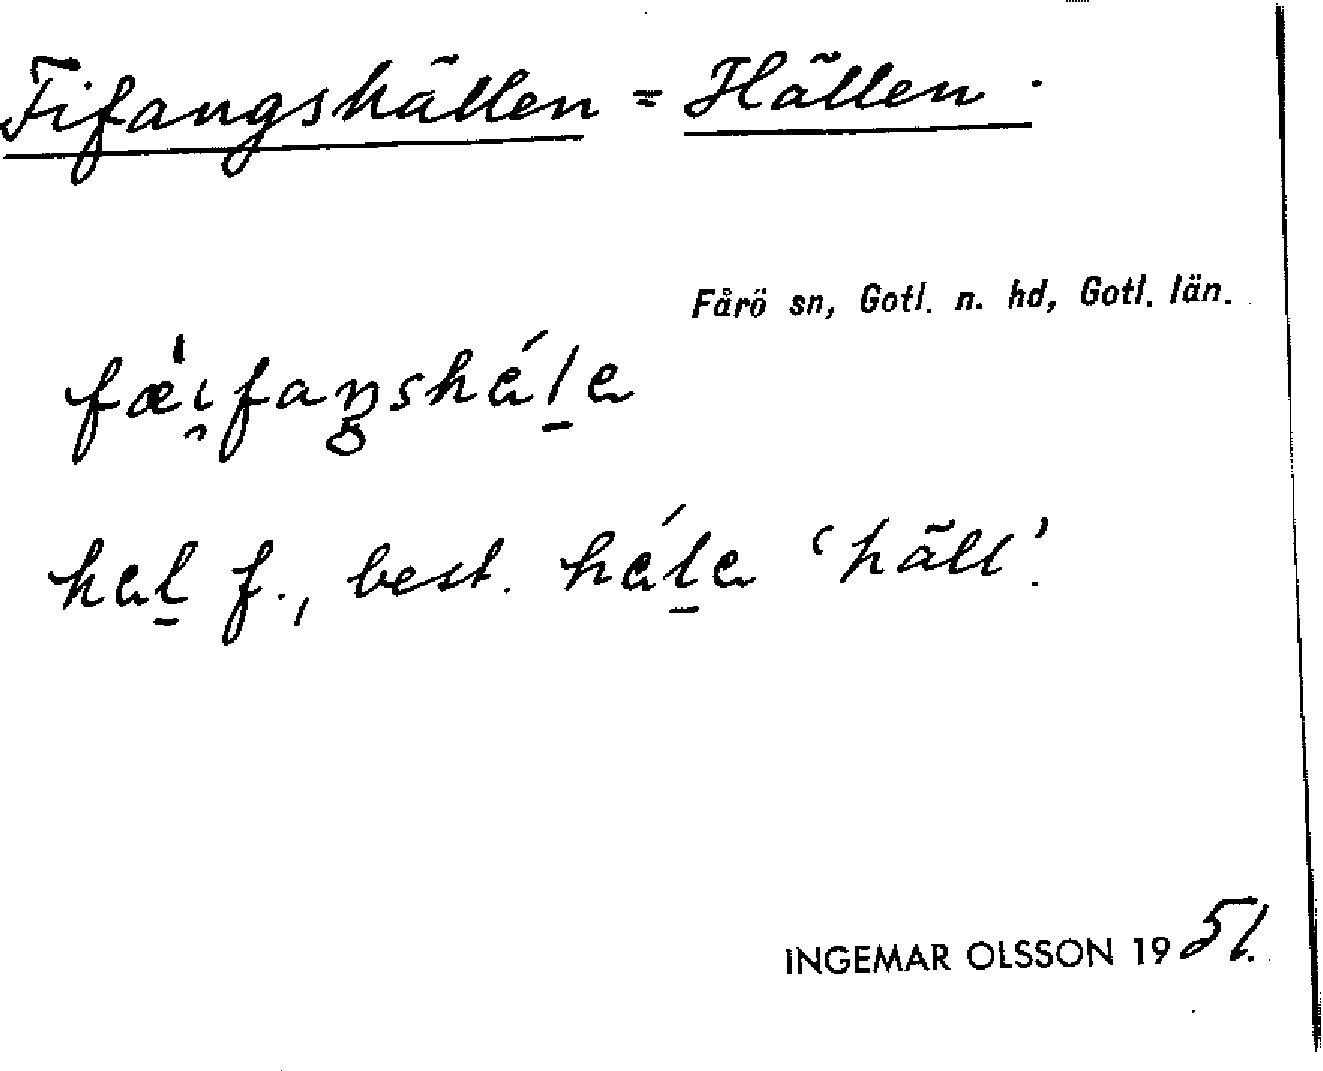 Fifangshällen = Hällen.
Fårö sn, Gotl. n. hd, Gotl. län.
fæ̍i̯faŋshál̠a
hal̠ f., best. hál̠a ‘häll’.
INGEMAR OLSSON 1951.